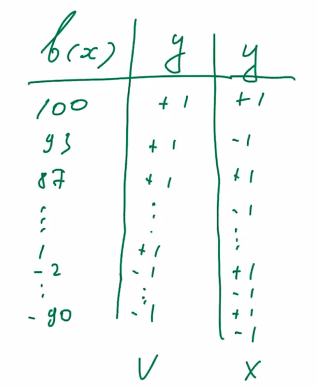 b(x) y y
100 +1 +1
93 +1 -1
87 +1 +1
⋮ ⋮ -1
1 +1 ⋮
-2 -1 +1
⋮ ⋮ -1
-90 -1 +1
-1
V X